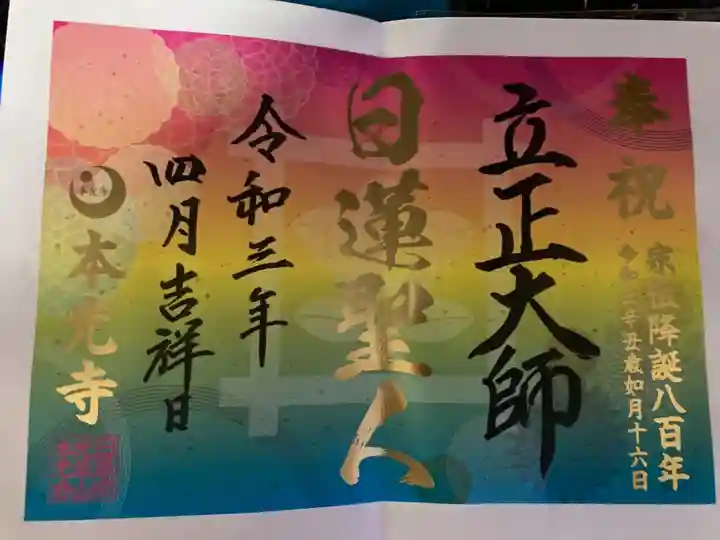 奉祝
宗祖降誕八百年
令和三辛丑歳如月十六日
立正大師
日蓮聖人
令和三年
四月吉祥日
本光寺